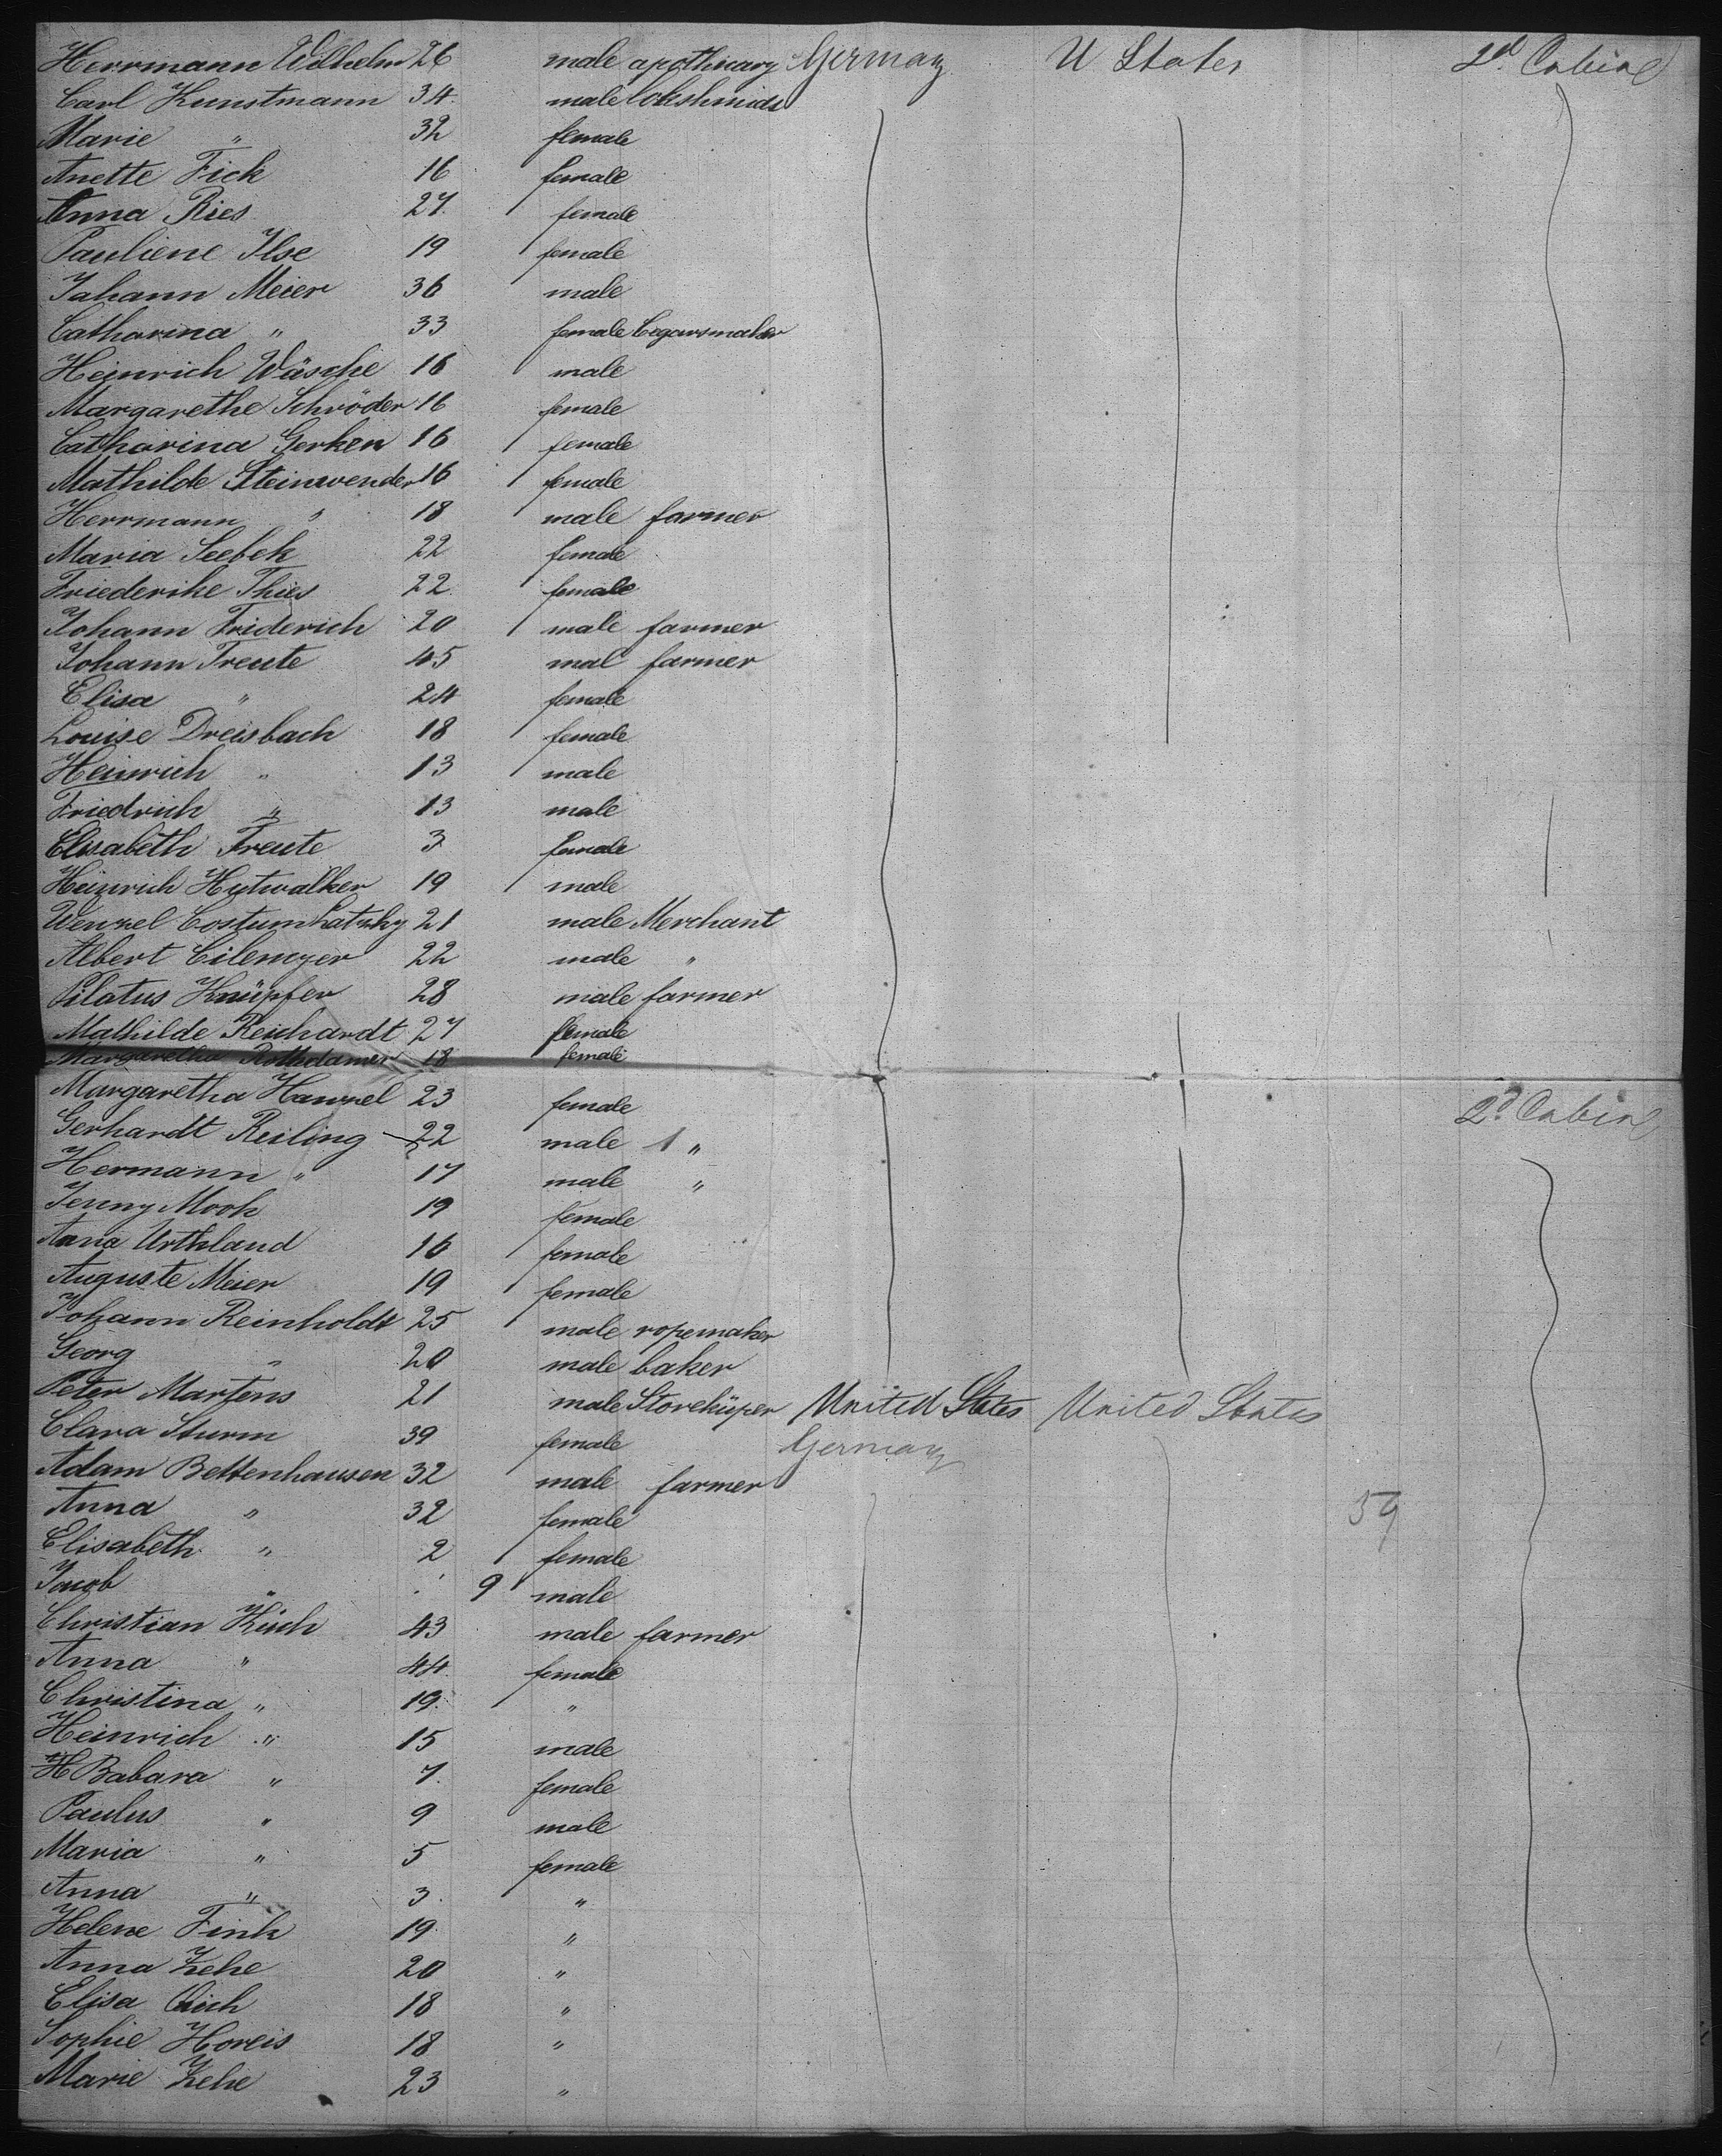 Herrmann Wilhelm 26 male apothicary Germany U States 2d Cabine
Carl Kunstmann 34 male lokshmidt
Marie " 32 female
Anette Fick 16 female
Anna Ries 27 female
Pauliene Ilse 19 female
Johann Meier 36 male
Catharina " 33 female Cegarsmaker
Heinrich Wäsche 16 male
Margarethe Schröder 16 female
Catharina Gerken 16 female
Mathilde Steinwender 16 female
Herrmann " 18 male farmer
Maria Seebek 22 female
Friederike Thies 22 female
Johann Friderich 20 male farmer
Johann Treute 45 mal farmer
Elisa " 24 female
Louise Dreisbach 18 female
Heinrich " 13 male
Friedrich " 13 male
Elisabeth Treute 3 female
Heinrich Hutwalker 19 male
Wenzel 21 male Merchant
Albert Eilemeyer 22 male "
Pilatus Knüpfer 28 male farmer
Mathilde Reichardt 27 female
Margaretha Rothdamer 18 female
Margaretha Hanzel 23 female 2d Cabine
Gerhardt Reiling 22 male 1 "
Hermann " 17 male "
Jenny Mook 19 female
Anna Urthland 16 female
Auguste Meier 19 female
Johann Reinholdt 25 male ropemaker
Georg " 20 male baker
Peter Martens 21 male Storeküper United States United States
Clara Sturm 39 female Germany
Adam Bettenhausen 32 male farmer
Anna " 32 female 59
Elisabeth " 2 female
Jacob " 9 male
Christian Küch 43 male farmer
Anna " 44 female
Christina " 19 "
Heinrich " 15 male
H Babara " 7 female
Paulus " 9 male
Maria " 5 female
Anna " 3 "
Helene Fink 19 "
Anna Zehe 20 "
Elisa 18 "
Sophie Horeis 18 "
Marie Zehe 23 "